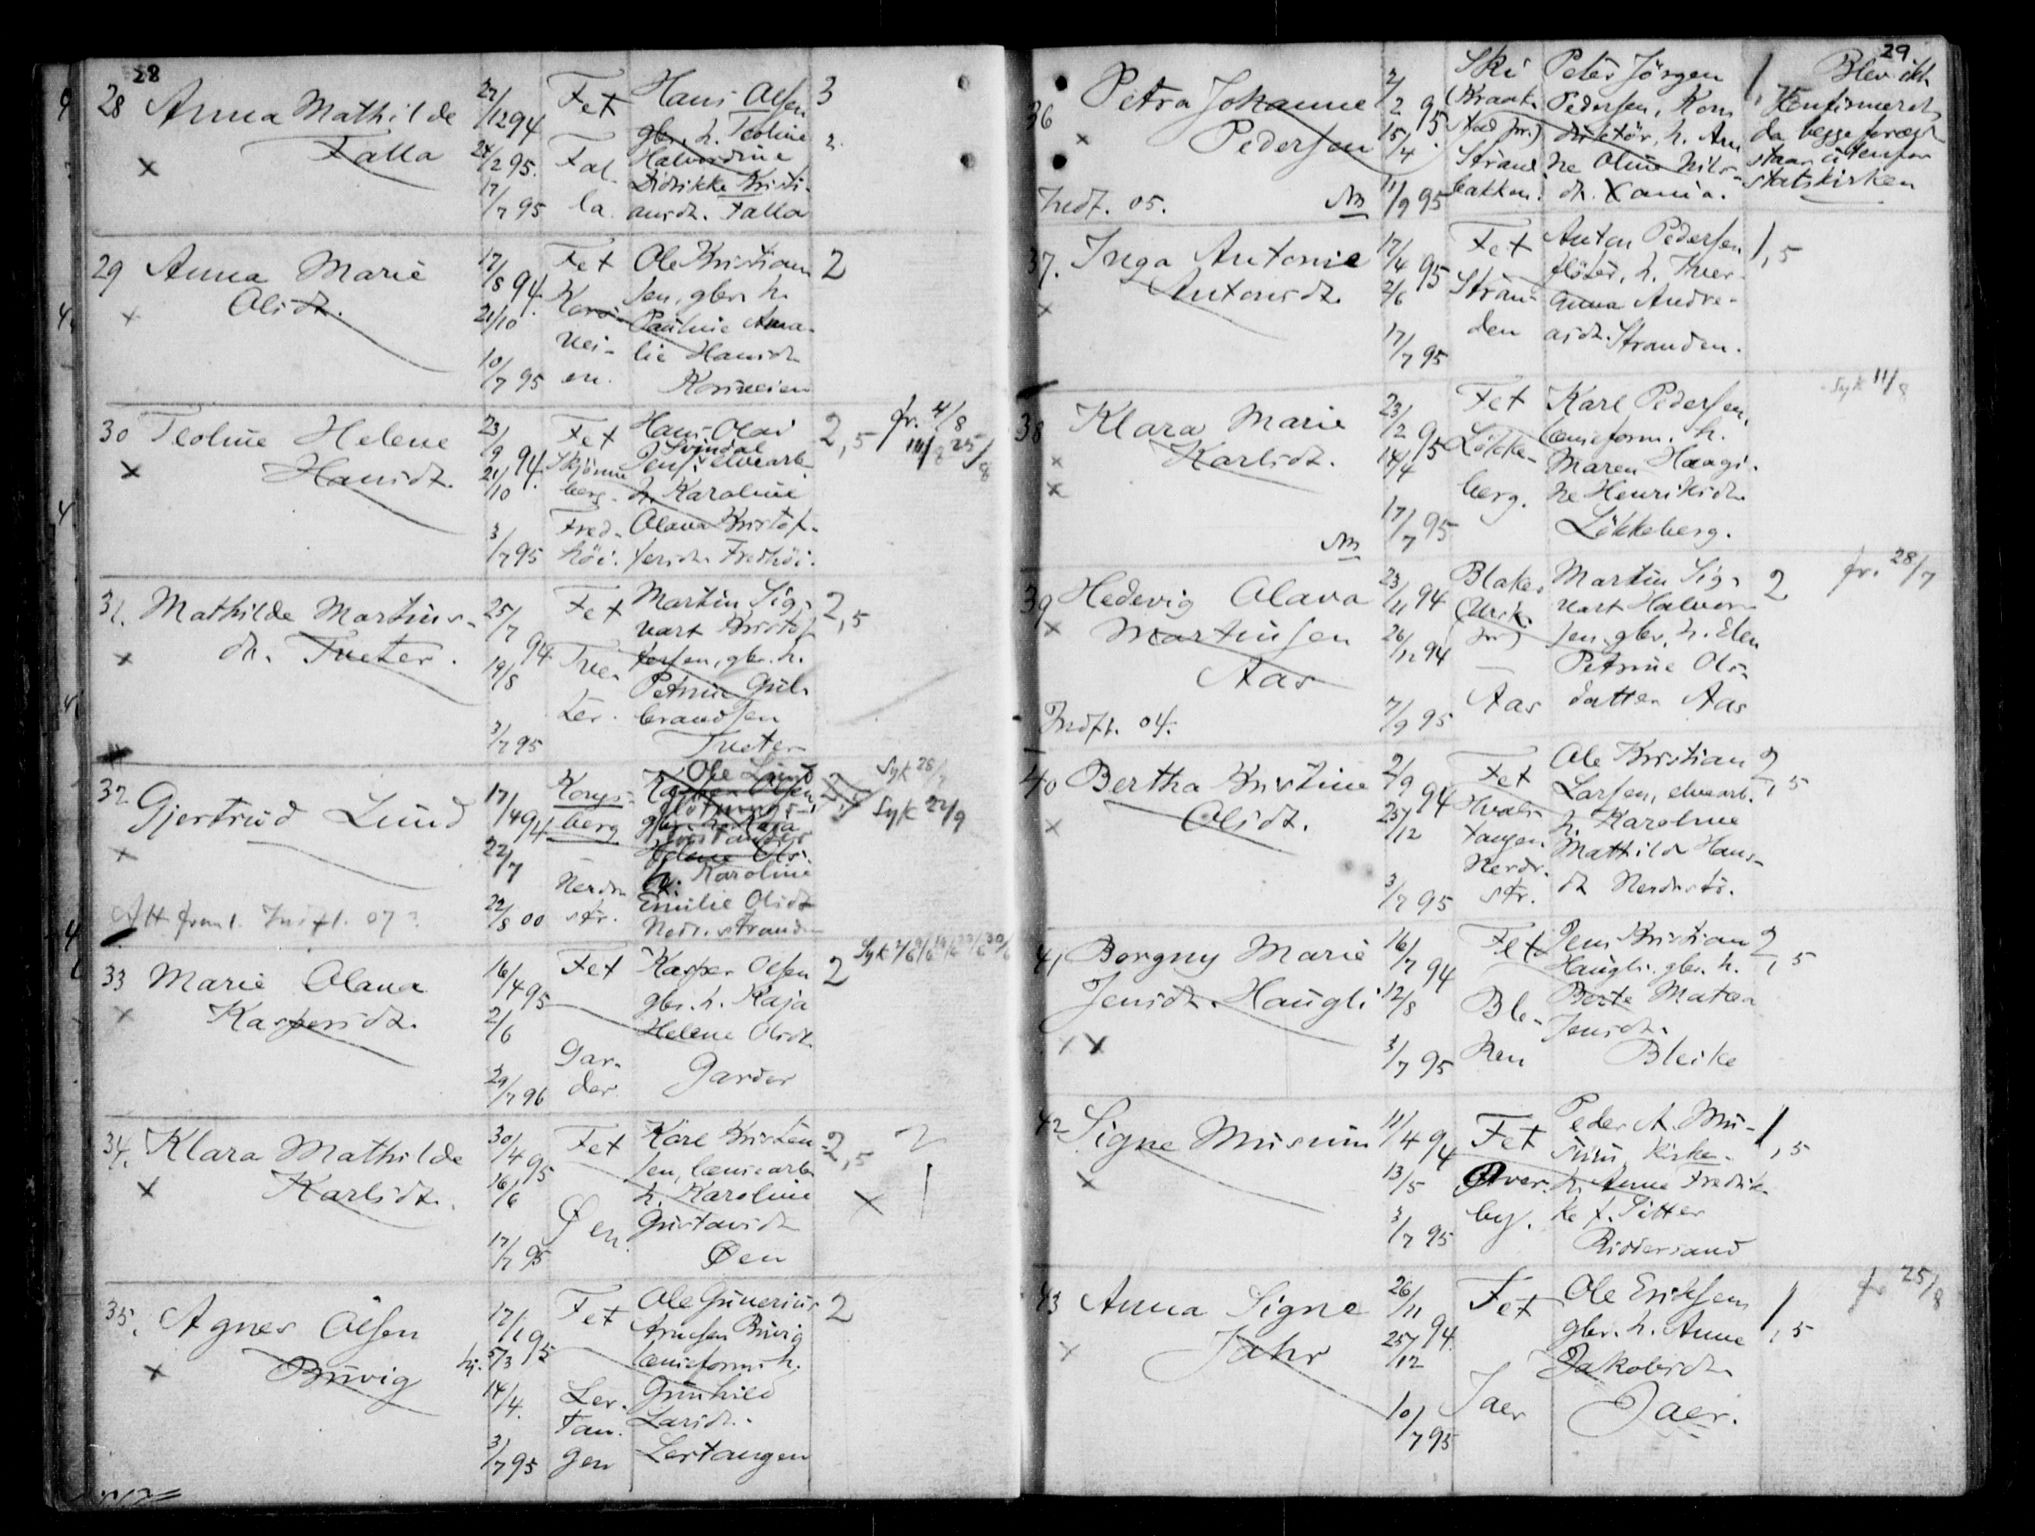 28
28 Anna Mathilde
Falla
x
22/12 94
24/2 95.
17/7 95
Fet
Fal-
la.
Hans Olsen
gbr. h. Teoline
Halvordine
Didrikke Kristi-
ansdt. Falla
3
29 Anna Marie
Olsdt.
x
17/8 94.
21/10
10/7 95
Fet
Kors-
vei-
en.
Ole Kristian
sen, gbr. h.
Pauline Ama-
lie Hansdt.
Korsveien
2
30 Teoline Helene
Hansdt.
x
23/9 94.
21/10
3/7 95
Fet
Fred-
höi.
Hans Olai
Svindal
elvearb.
h. Karoline
Olava Kristof-
fersdt. Fredhöi.
2,5
fr. 4/8
11/8 25/8
31. Mathilde Martins-
dt. Tveter.
x
25/7 94
19/8
3/7 95
Fet
Tve-
ter.
Martin Sig-
vart Kristof
fersen, gbr. h.
Petrine Gul-
brandsen
Tveter
2,5
32 Gjertrud Lund
x
17/4 94
22/7
22/8 00
Kongs-
berg
Nerdre
str.
Ole Lund
h. Karoline
Emilie Olsdt
Nedr. strand
Syk 28/7
Syk 22/9
33 Marie Olava
Kaspersdt.
x
16/4 95
2/6
29/7 96
Fet
Gar-
der.
Kasper Olsen
gbr. h. Kaja
Helene Olsdt.
Garder
2
34. Klara Mathilde
Karlsdt.
x
30/4 95
16/6
17/7 95
Fet
Øen.
Karl Kristen
sen, lænsearb.
h. Karoline
Gustavsdt
Øen
2,5
2
x 1
35. Agnes Olsen
Buvig
x
17/1 95
hj. 5/3
14/4.
3/7 95
Fet
Ler-
tan-
gen
Ole Gunerius
Arnesen Buvig
lænseform. h.
Gunhild
Larsdt.
Lertangen
2
29
36 Petra Johanne
Pedersen
x
Indf. 05.
2/2 95
15/4.
11/9 95
Ski
(Kraak-
stad pr.)
Strand
bakken.
Peter Jörgen
Pedersen, Kon
duktör, h. An
ne Oline Nils-
dt. Xania.
1
Blev ikke
Konfirmeret,
da begge foræld
staar utenfor
statskirken
37. Inga Antonie
Antonsdt.
x
17/4 95
2/6
17/7 95
Fet
Stran-
den
Anton Pedersen
flöter, h. Iver-
anna Andre-
asdt. Stranden.
1,5
38 Klara Marie
Karlsdt.
x
x
23/2 95
14/4
17/7 95
Fet
Løkke-
berg.
Karl Pedersen,
lænseform. h.
Maren Haagi-
ne Henriksdt.
Løkkeberg.
Syk 11/8
39 Hedevig Olava
Martinsen
Aas
x
Indfl. 04.
23/11 94
26/12 94
7/9 95
Blaker
(Ursk.
pr.)
Aas
Martin Sig-
vart Halvor-
sen, gbr. h. Elen
Petrine Ols-
datter Aas
2
fr. 28/7
40 Bertha Kristine
Olsdt.
x
2/9 94
25/12
3/7 95
Fet
Hvals-
tangen
Nerdr.
str.
Ole Kristian
Larsen, elvearb.
h. Karoline
Mathilde Hans-
dt Nerdrstr.
2,5
41 Borgny Marie
Jensdt. Haugli
x x
16/7 94
12/8
3/7 95
Fet
Ble-
ken
Jens Kristian
Haugli. gbr. h.
Berte Matea
Jensdt.
Bleike
2,5
42 Signe Musum
x
11/4 94
13/5
3/7 95
Fet
Øver-
by.
Peder A. Mu-
sum, Kirke-
h. Anna Fredrik-
ke f. Sitter
Riddersand
1,5
43 Anna Signe
Jahr
x
26/11 94.
25/12
10/7 95
Fet
Jaer
Ole Eriksen
gbr. h. Anne
Jakobsdt.
Jaer.
1,5
fr 25/8